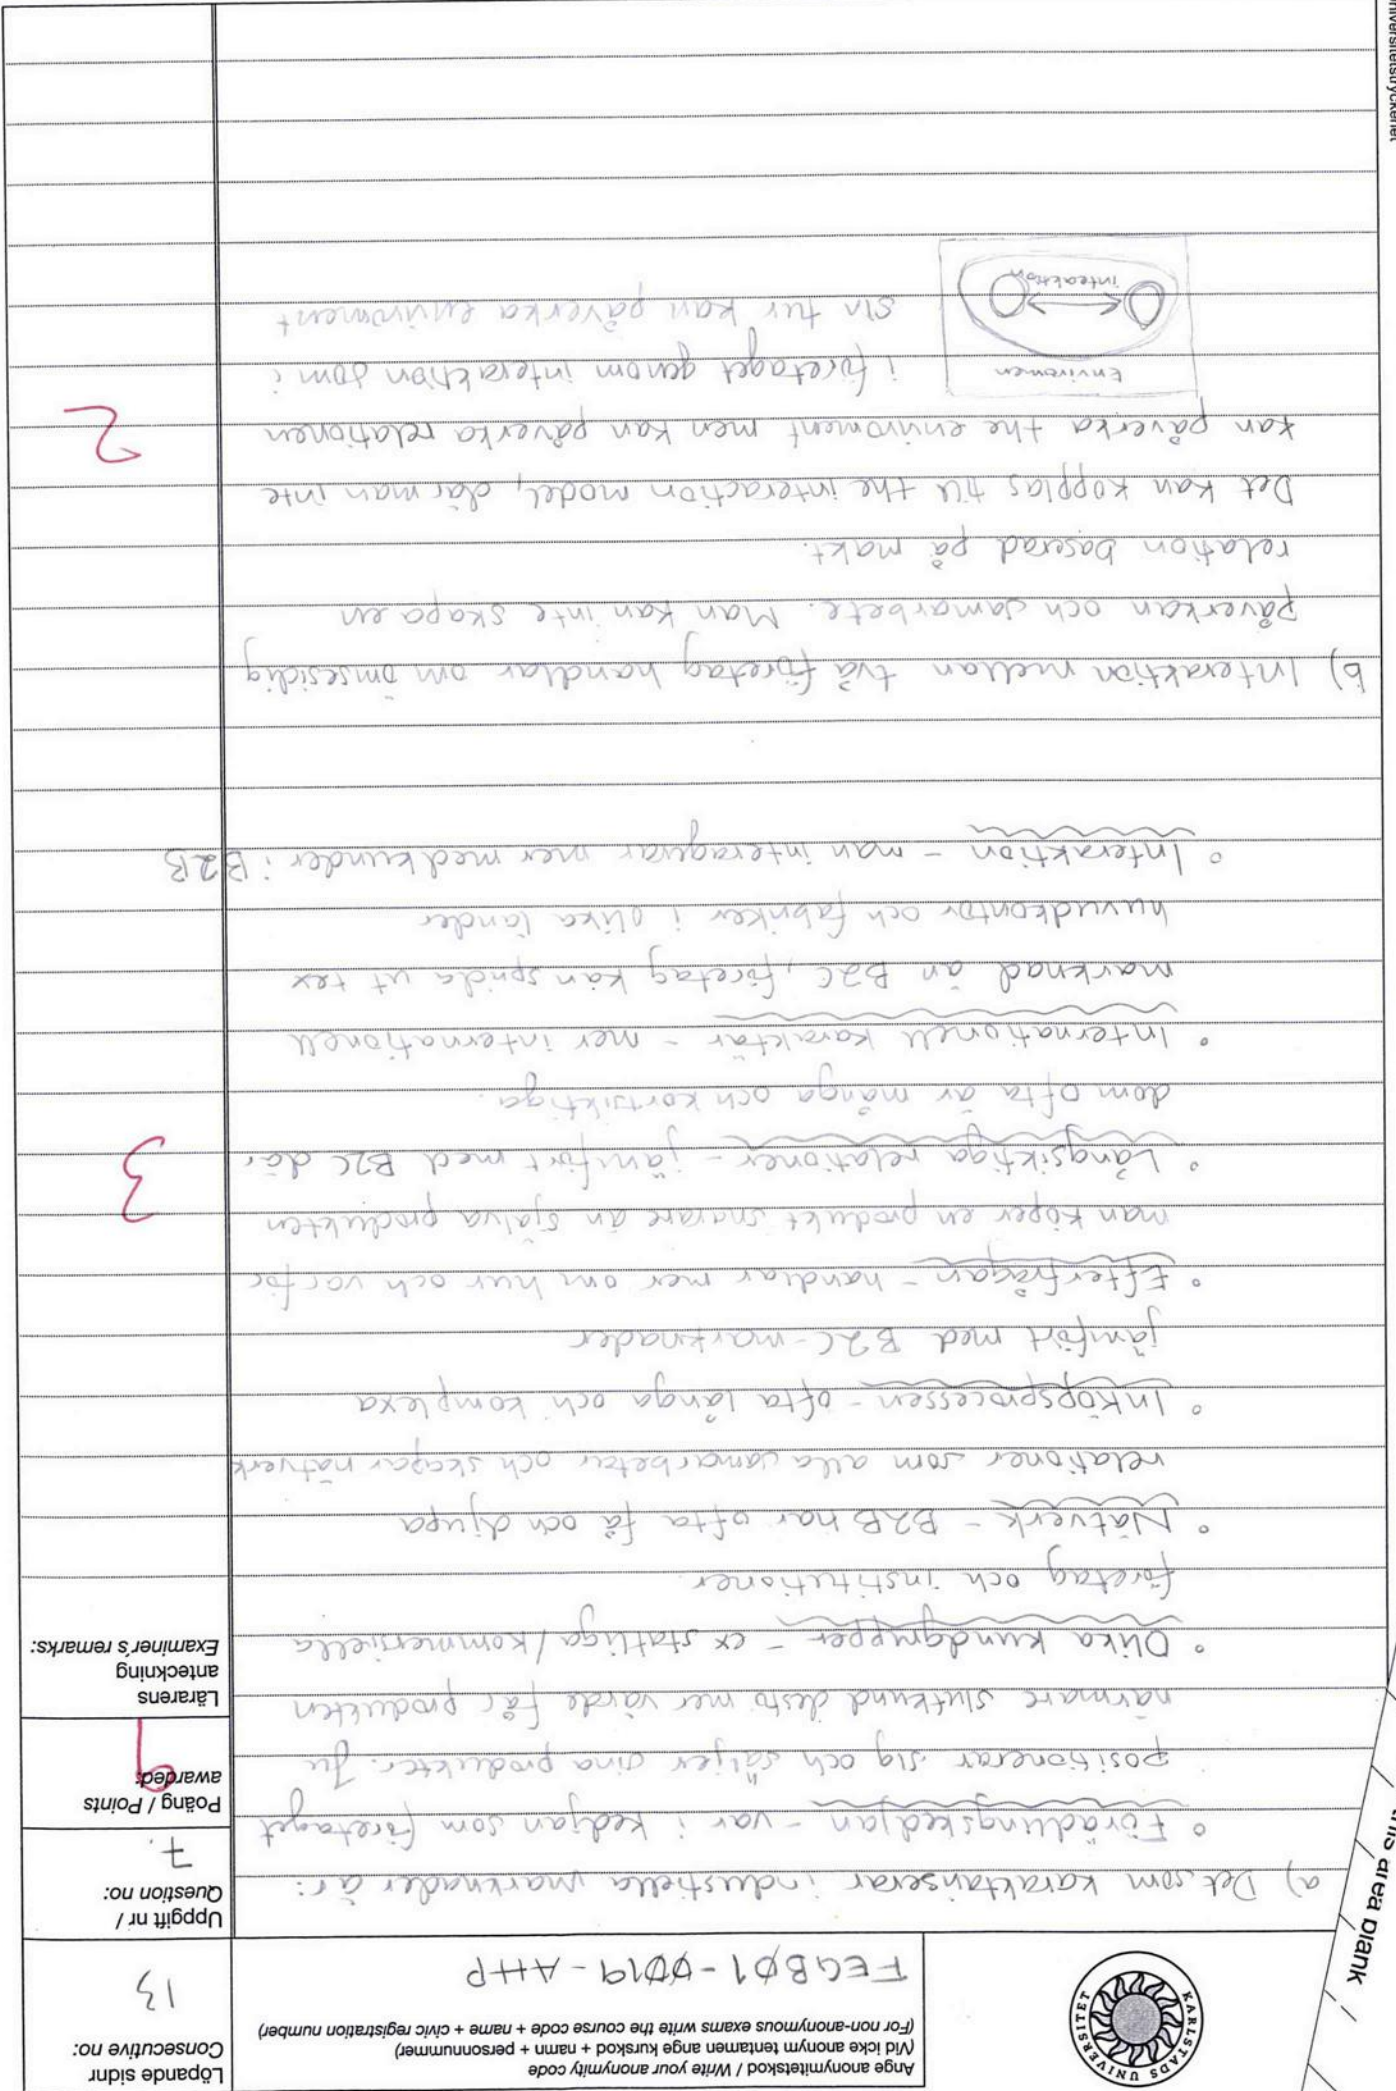 KARLSTADS UNIVERSITET
Ange anonymitetskod / Write your anonymity code
(Vid icke anonym tentamen ange kurskod + namn + personnummer)
(For non-anonymous exams write the course code + name + civic registration number)
FEGB01-0019-AHP
Löpande sidnr
Consecutive no:
13
Uppgift nr /
Question no:
7.
Poäng / Points
awarded:
Lärarens
anteckning
Examiner's remarks:
a) Det som karaktäriserar industriella marknader är:
◦ Förädlingskedjan - var i kedjan som företaget
positionerar sig och säljer sina produkter. Ju
närmare slutkund desto mer värde får produkten
◦ Olika kundgrupper - ex statliga / kommersiella
företag och institutioner.
◦ Nätverk - B2B har ofta få och djupa
relationer som alla samarbetar och skapar nätverk
◦ Inköpsprocessen - ofta långa och komplexa
jämfört med B2C-marknader
◦ Efterfrågan - handlar mer om hur och varför
man köper en produkt snarare än själva produkten
◦ Långsiktiga relationer - jämfört med B2C där
dom ofta är många och kortsiktiga.
3
◦ Internationell karaktär - mer internationell
marknad än B2C, företag kan sprida ut tex
huvudkontor och fabriker i olika länder
◦ Interaktion - man interagerar mer med kunder i B2B
b) Interaktion mellan två företag handlar om ömsesidig
påverkan och samarbete. Man kan inte skapa en
relation baserad på makt.
Det kan kopplas till the interaction model, där man inte
kan påverka the enviroment men kan påverka relationen
2
i företaget genom interaktion som i
sin tur kan påverka enviroment
Enviromen
inteaktion
this area blank
Universitetstryckeriet